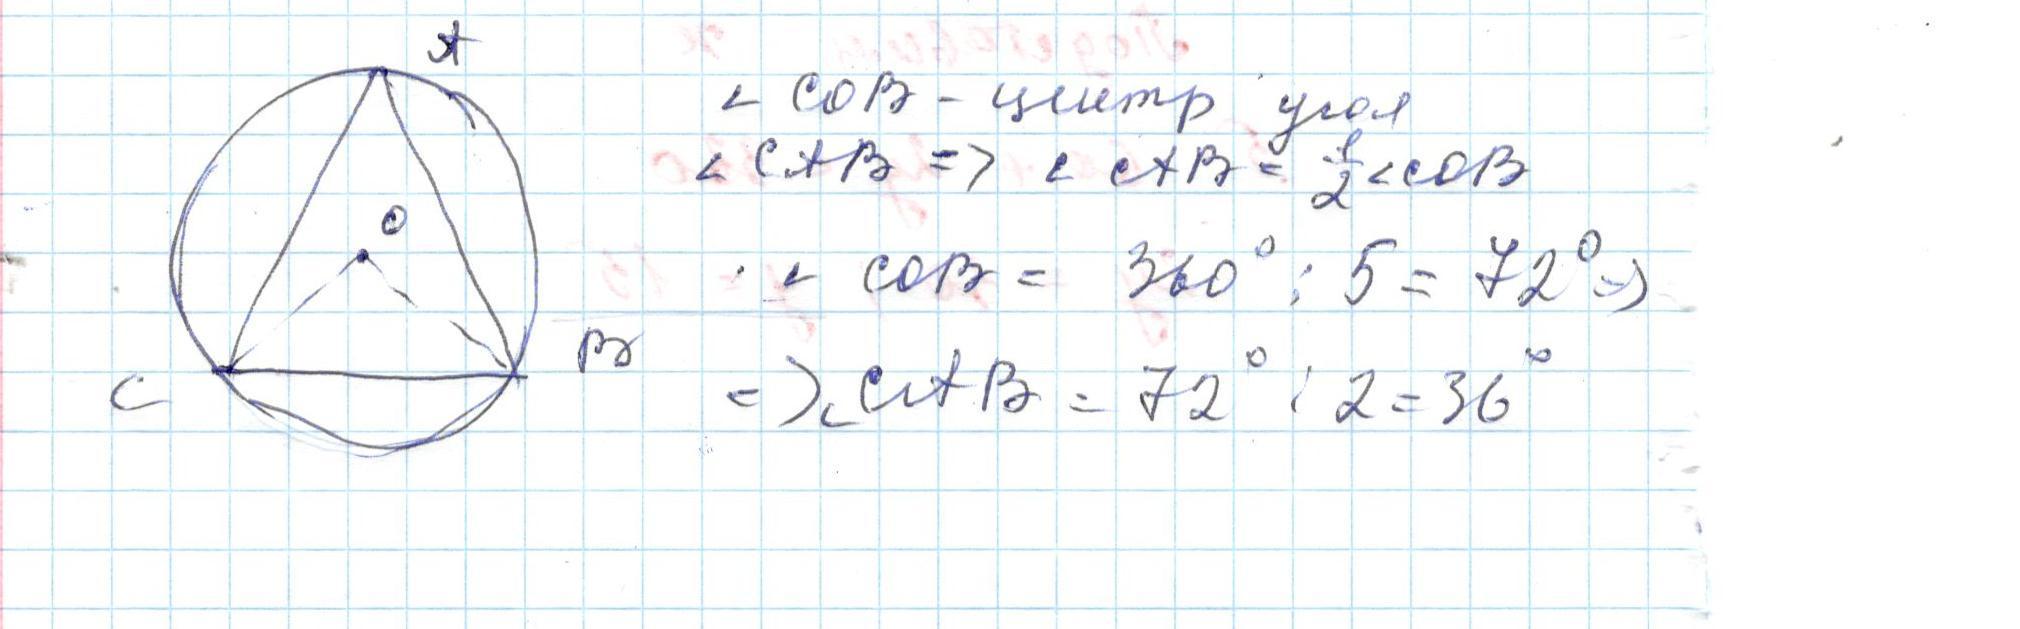 A
O
B
C
∠ COB - центр угол
∠ CAB => ∠ CAB = 1/2 ∠COB
∠ COB = 360° : 5 = 72° =>
=> ∠CAB = 72° : 2 = 36°